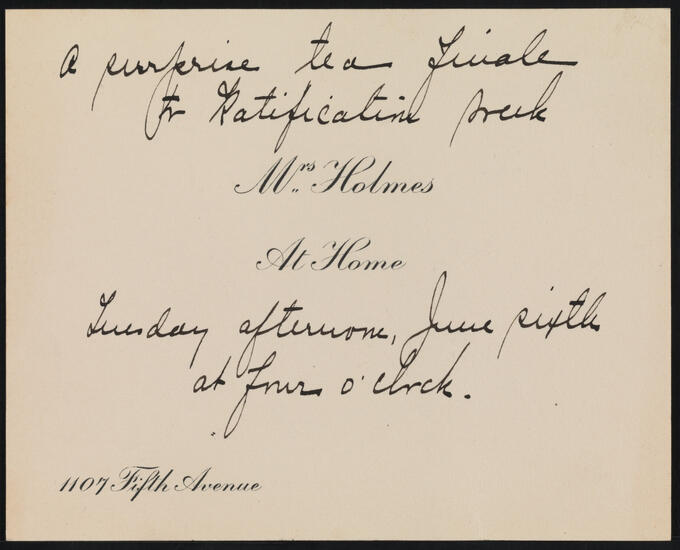 A surprise tea finale
to Ratification week
Mrs. Holmes
At Home
Tuesday afternoon, June sixth
at four o'clock.
1107 Fifth Avenue